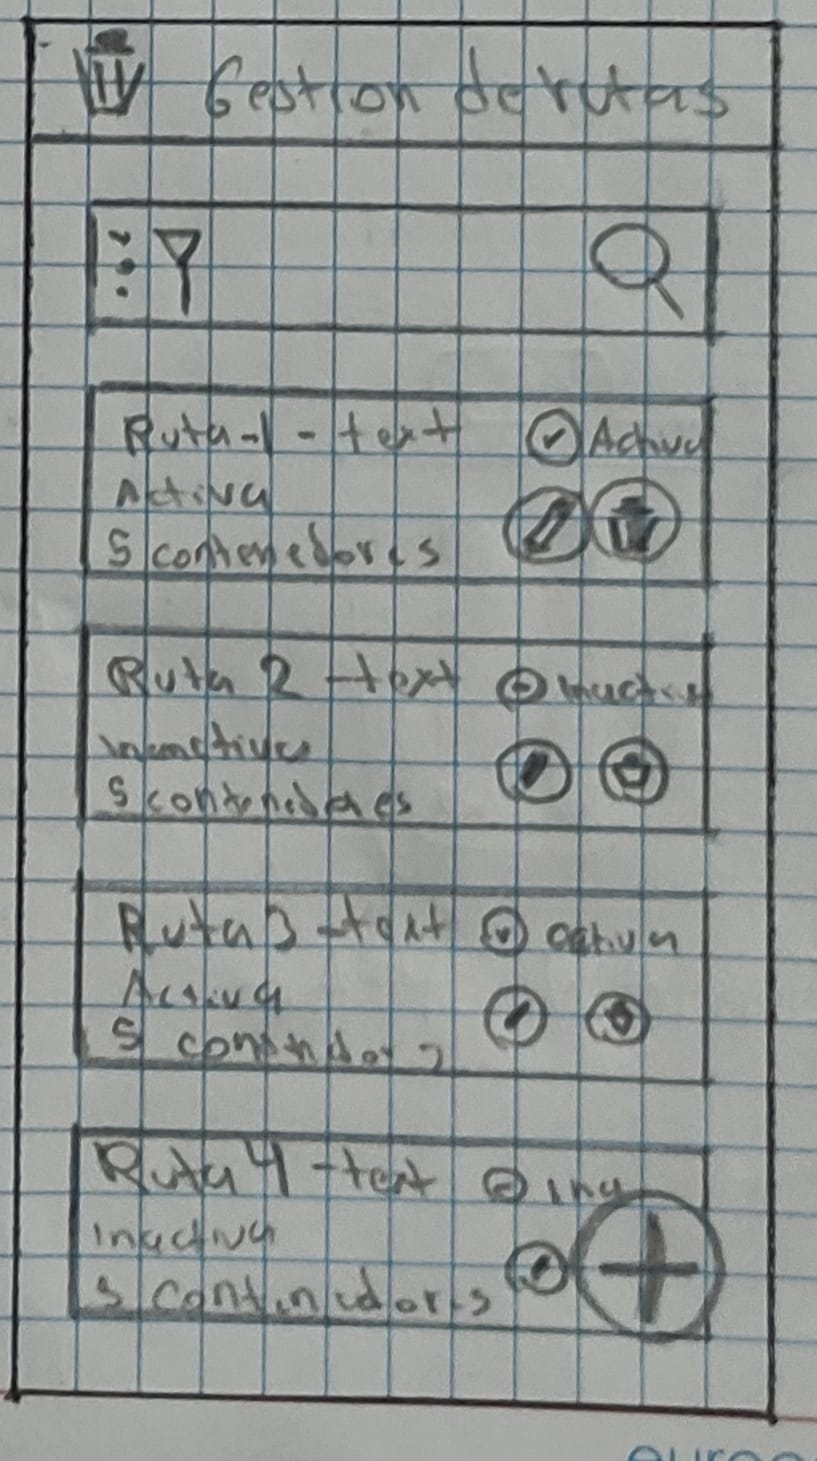 Gestion de rutas
Ruta-1 - text Activa
Activa
5 contenedores
Ruta 2 - text Inactiva
Inactiva
5 contenedores
Ruta 3 - text activa
Activa
5
Ruta 4 - text ina
inactiva
5 contenedores